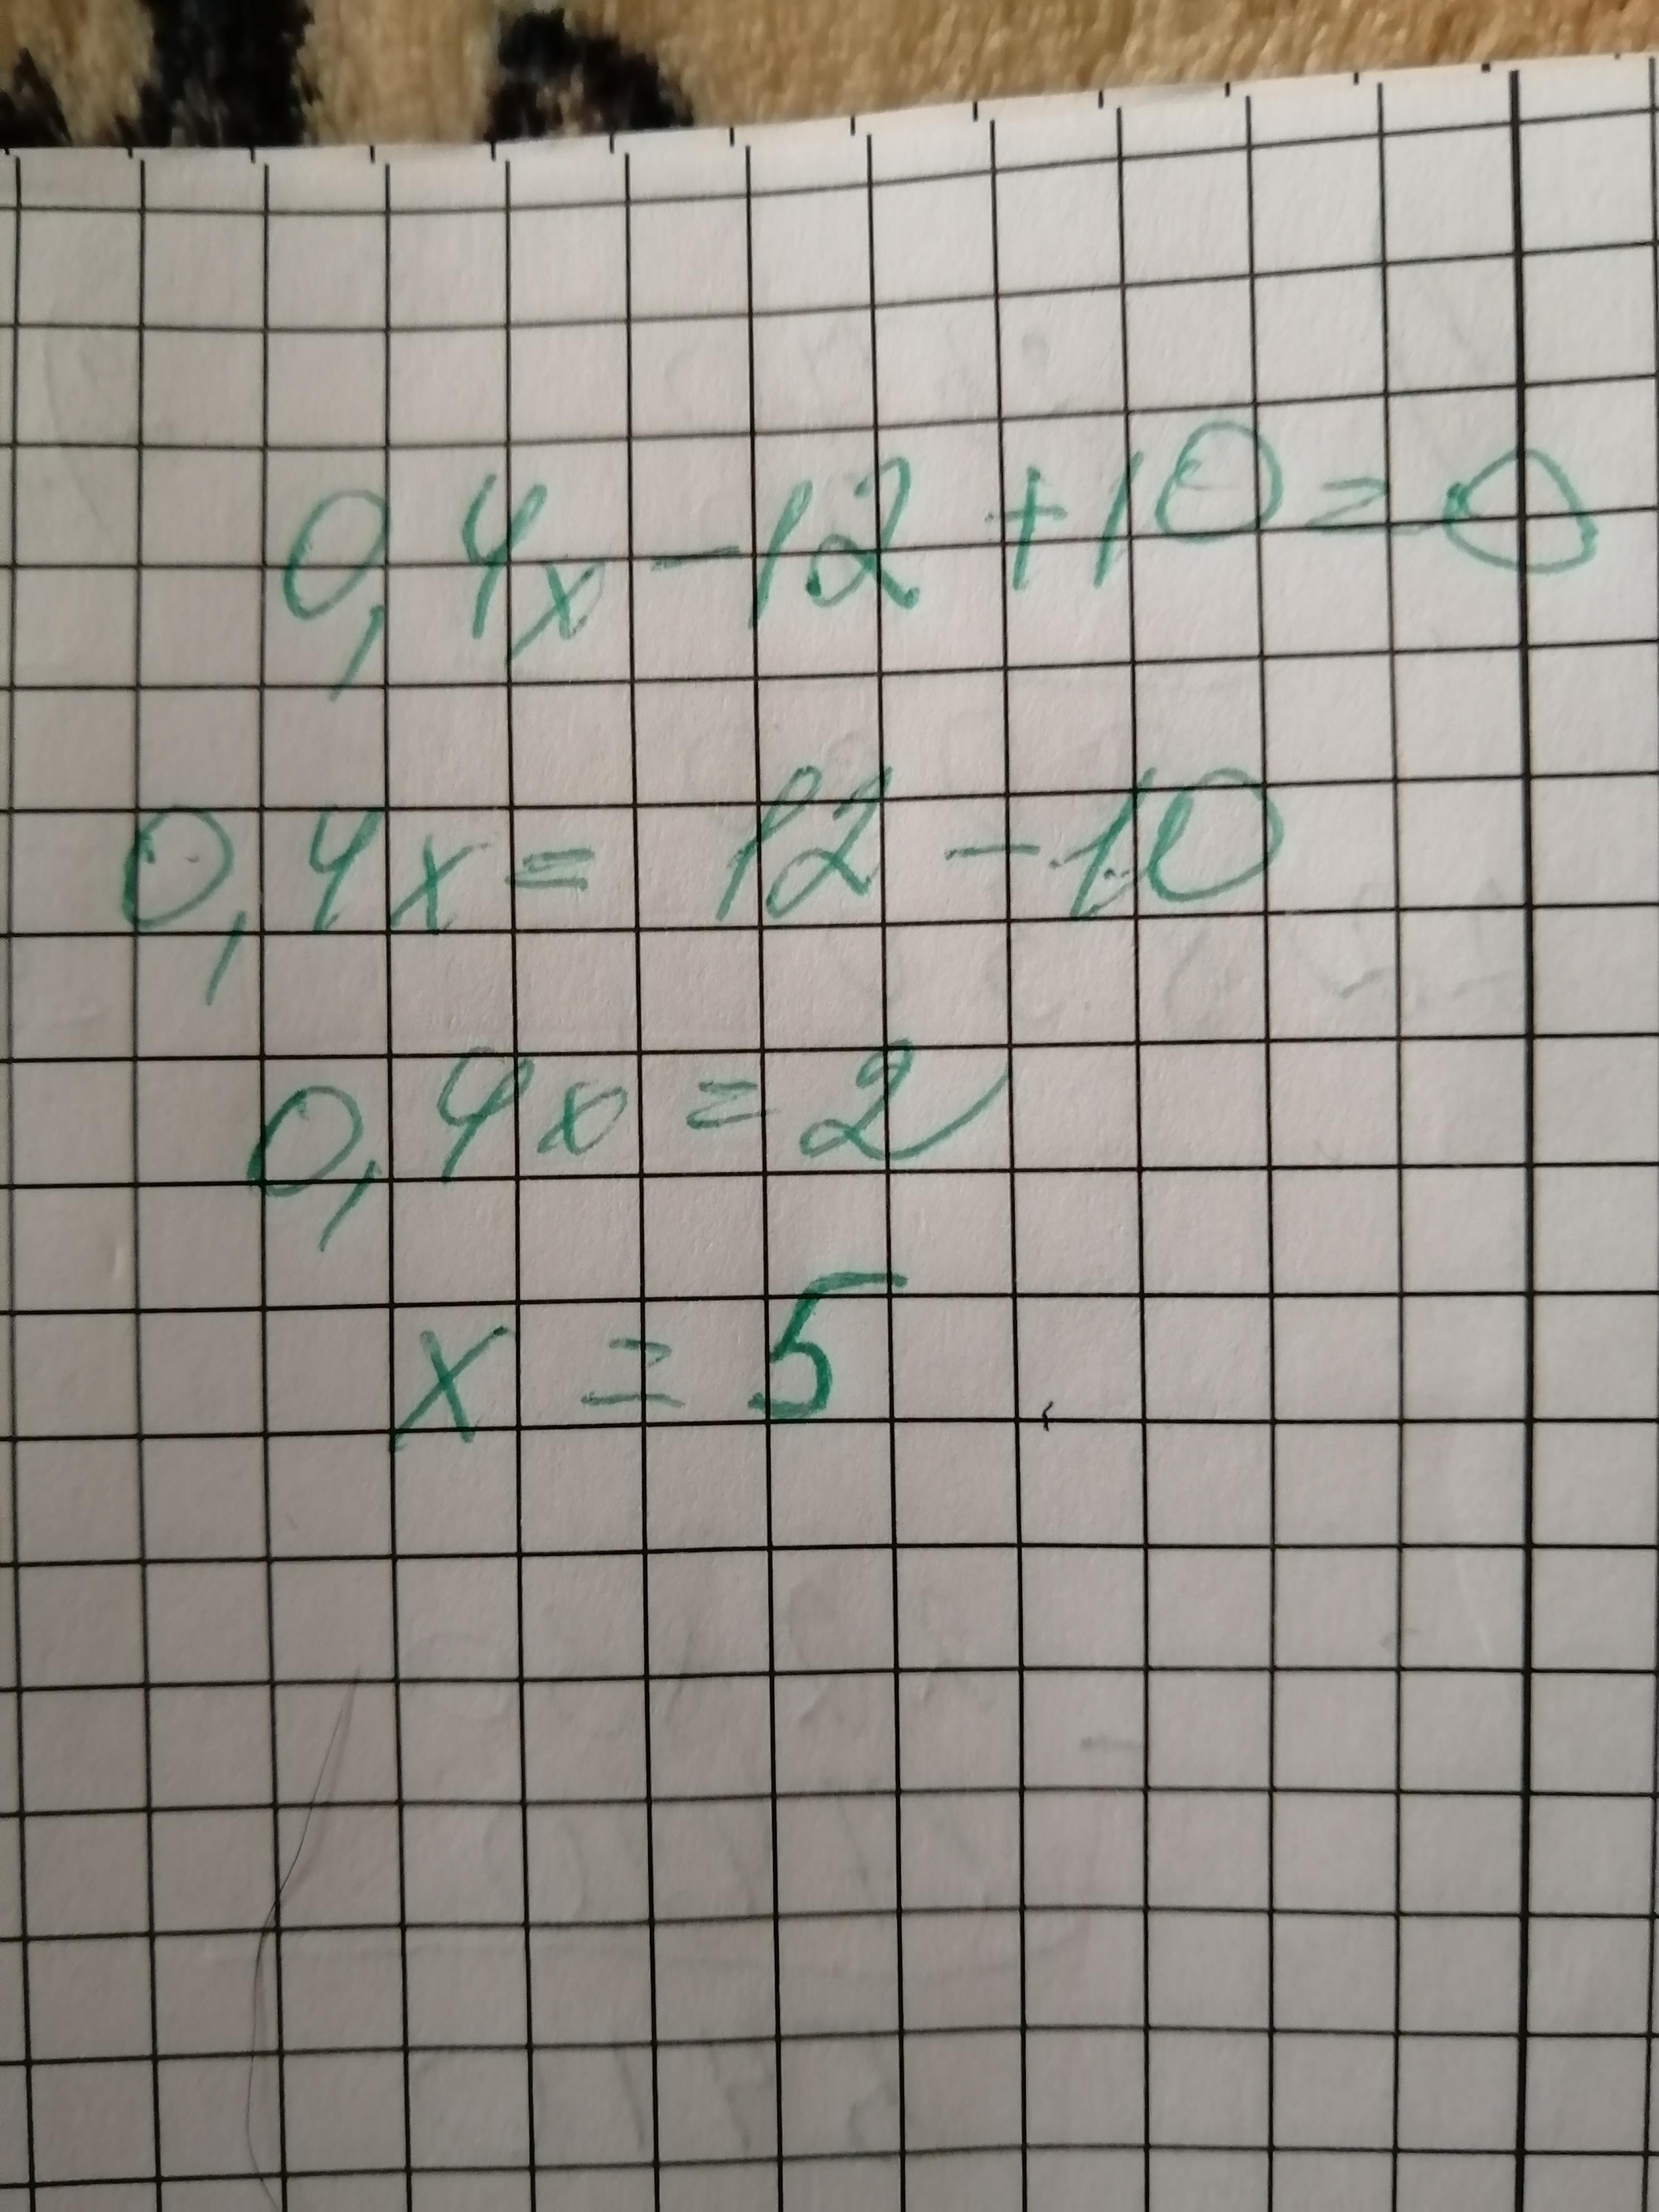 0,4x-12+10=0
0,4x=12-10
0,4x=2
x=5